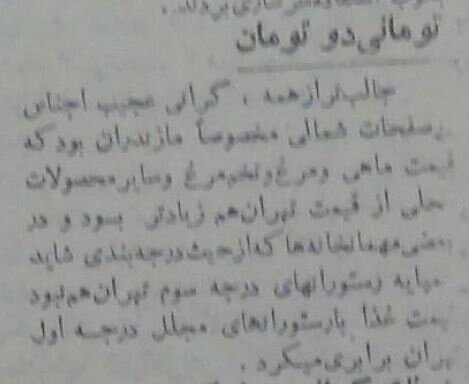 تومانی دو تومان
جالب‌تر از همه ، گرانی عجیب اجناس
صفحات شمالی مخصوصاً مازندران بود که
قیمت ماهی ومرغ وتخم‌مرغ وسایر محصولات
محلی از قیمت تهران هم زیادتر بود و در
بعضی مهمانخانه‌ها که از حیث درجه‌بندی شاید
همپایه رستورانهای درجه سوم تهران هم نبود
قیمت غذا با رستورانهای مجلل درجه اول
تهران برابری میکرد .